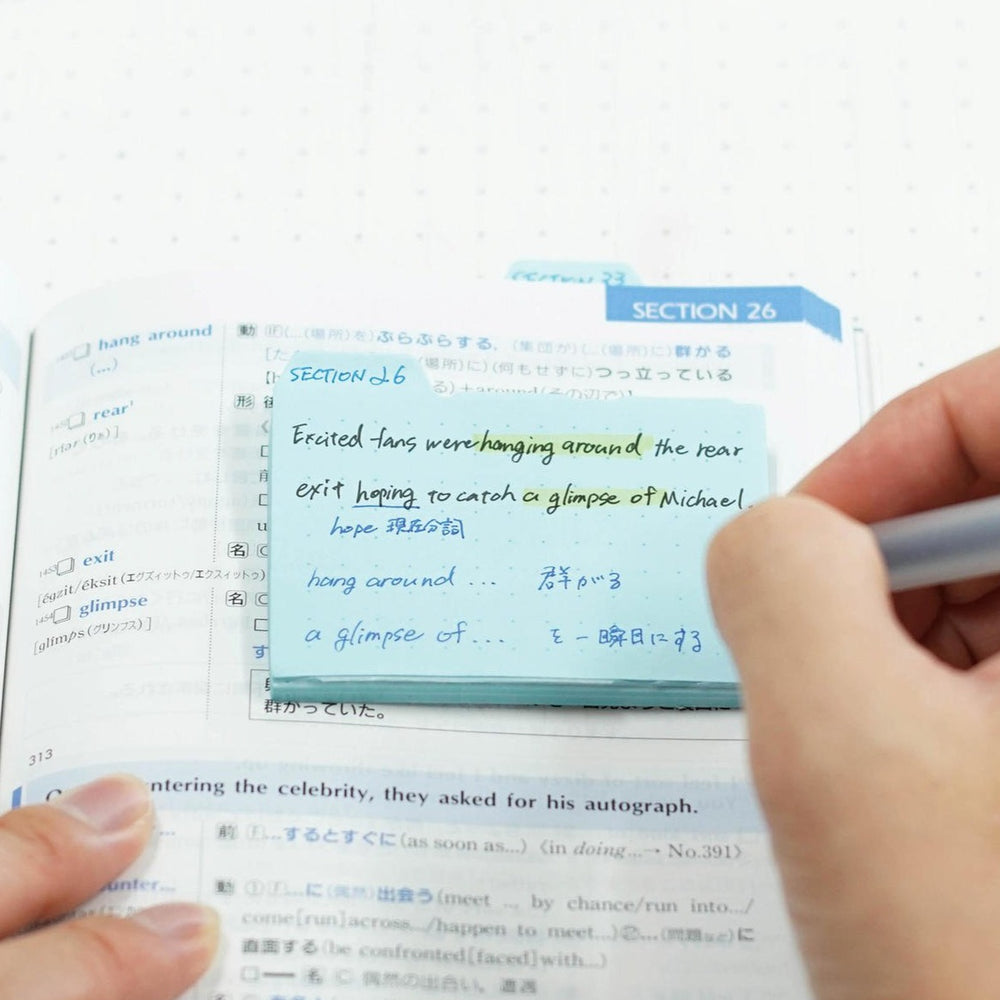 SECTION 33
SECTION 26
hang around
(...)
動 Ⓕ(…(場所)を)ぶらぶらする, (集団が)(…(場所)に)群がる
(場所)に)(何もせずに)つっ立っている
る)+around(その辺で)]
1452 rear¹
[rɪər(リア)]
形
1453 exit
[égzit/éksit(エグズィットゥ/エクスィットゥ)]
名
1454 glimpse
[glímps(グリンプス)]
名
SECTION 26
Excited fans were hanging around the rear
exit hoping to catch a glimpse of Michael.
hope 現在分詞
hang around ... 群がる
a glimpse of ... を一瞬目にする
群がっていた。
313
ntering the celebrity, they asked for his autograph.
前 Ⓕ…するとすぐに(as soon as...)〈in doing...→ No.391〉
unter...
動 ①Ⓕ…に(偶然)出会う(meet ... by chance/run into.../
come[run]across.../happen to meet...)②…(問題など)に
直面する(be confronted[faced]with...)
名 Ⓒ 偶然の出会い, 遭遇